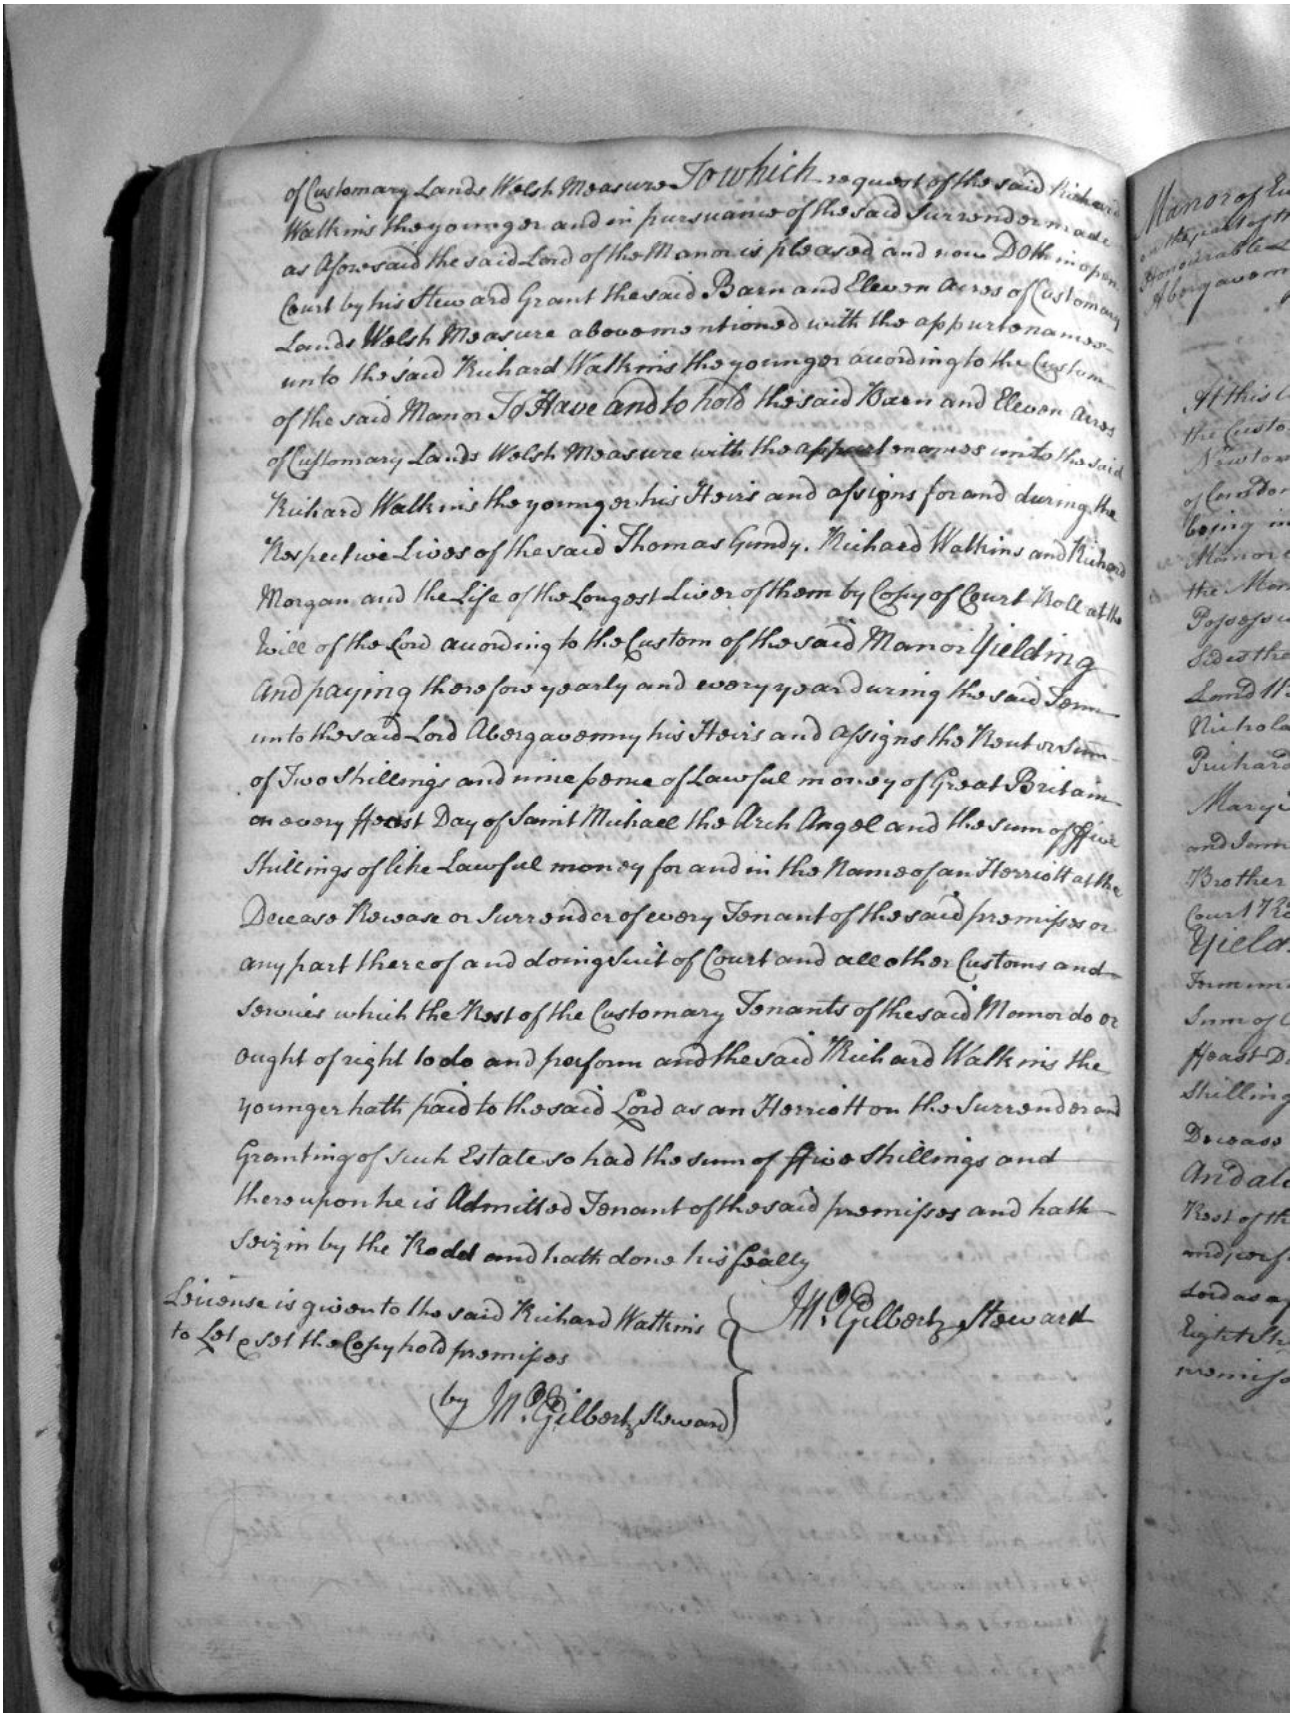 of Customary Lands Welsh Measure To which request of the said Richard
Watkins the younger and in pursuance of the said Surrender made
as Aforesaid the said Lord of the Manor is pleased and now Doth in open
Court by his Steward Grant the said Barn and Eleven Acres of Customary
Lands Welsh Measure abovementioned with the appurtenances
unto the said Richard Watkins the younger according to the Custom
of the said Manor To Have and to hold the said Barn and Eleven Acres
of Customary Lands Welsh Measure with the appurtenances unto the said
Richard Watkins the younger his Heirs and assigns for and during the
Respective Lives of the said Thomas Gundy, Richard Watkins and Richard
Morgan and the Life of the Longest Liver of them by Copy of Court Roll at the
Will of the Lord according to the Custom of the said Manor Yielding
And paying therefore yearly and every year during the said Term
unto the said Lord Abergavenny his Heirs and assigns the Rent or Sum
of Two Shillings and nine pence of Lawful money of Great Britain
on every ffeast Day of Saint Michael the Arch Angel and the sum of ffive
Shillings of like Lawful money for and in the Name of an Herriott at the
Decease Rewase or Surrender of every Tenant of the said premisses or
any part thereof and doing Suit of Court and all other Customs and
services which the Rest of the Customary Tenants of the said Manor do or
ought of right to do and perform and the said Richard Watkins the
younger hath paid to the said Lord as an Herriott on the Surrender and
Granting of such Estate so had the sum of ffive Shillings and
thereupon he is Admitted Tenant of the said premisses and hath
Seizin by the Rodd and hath done his fealty
Leicense is given to the said Richard Watkins
to Let & set the Copyhold premises
by Mo. Gilbert Steward
Mo. Gilbert Steward
Manor of
on the part of
Honourable
Abergavenn
At this
the Custo
Newtow
of
being in
Manor
the Man
Possess
Land
Nichola
Prichard
Mary
and
Brother
Court
Yield
Sum of
ffeast D
Shilling
Decease
And al
Rest of th
and perf
Lord as a
Eight Sh
premiss